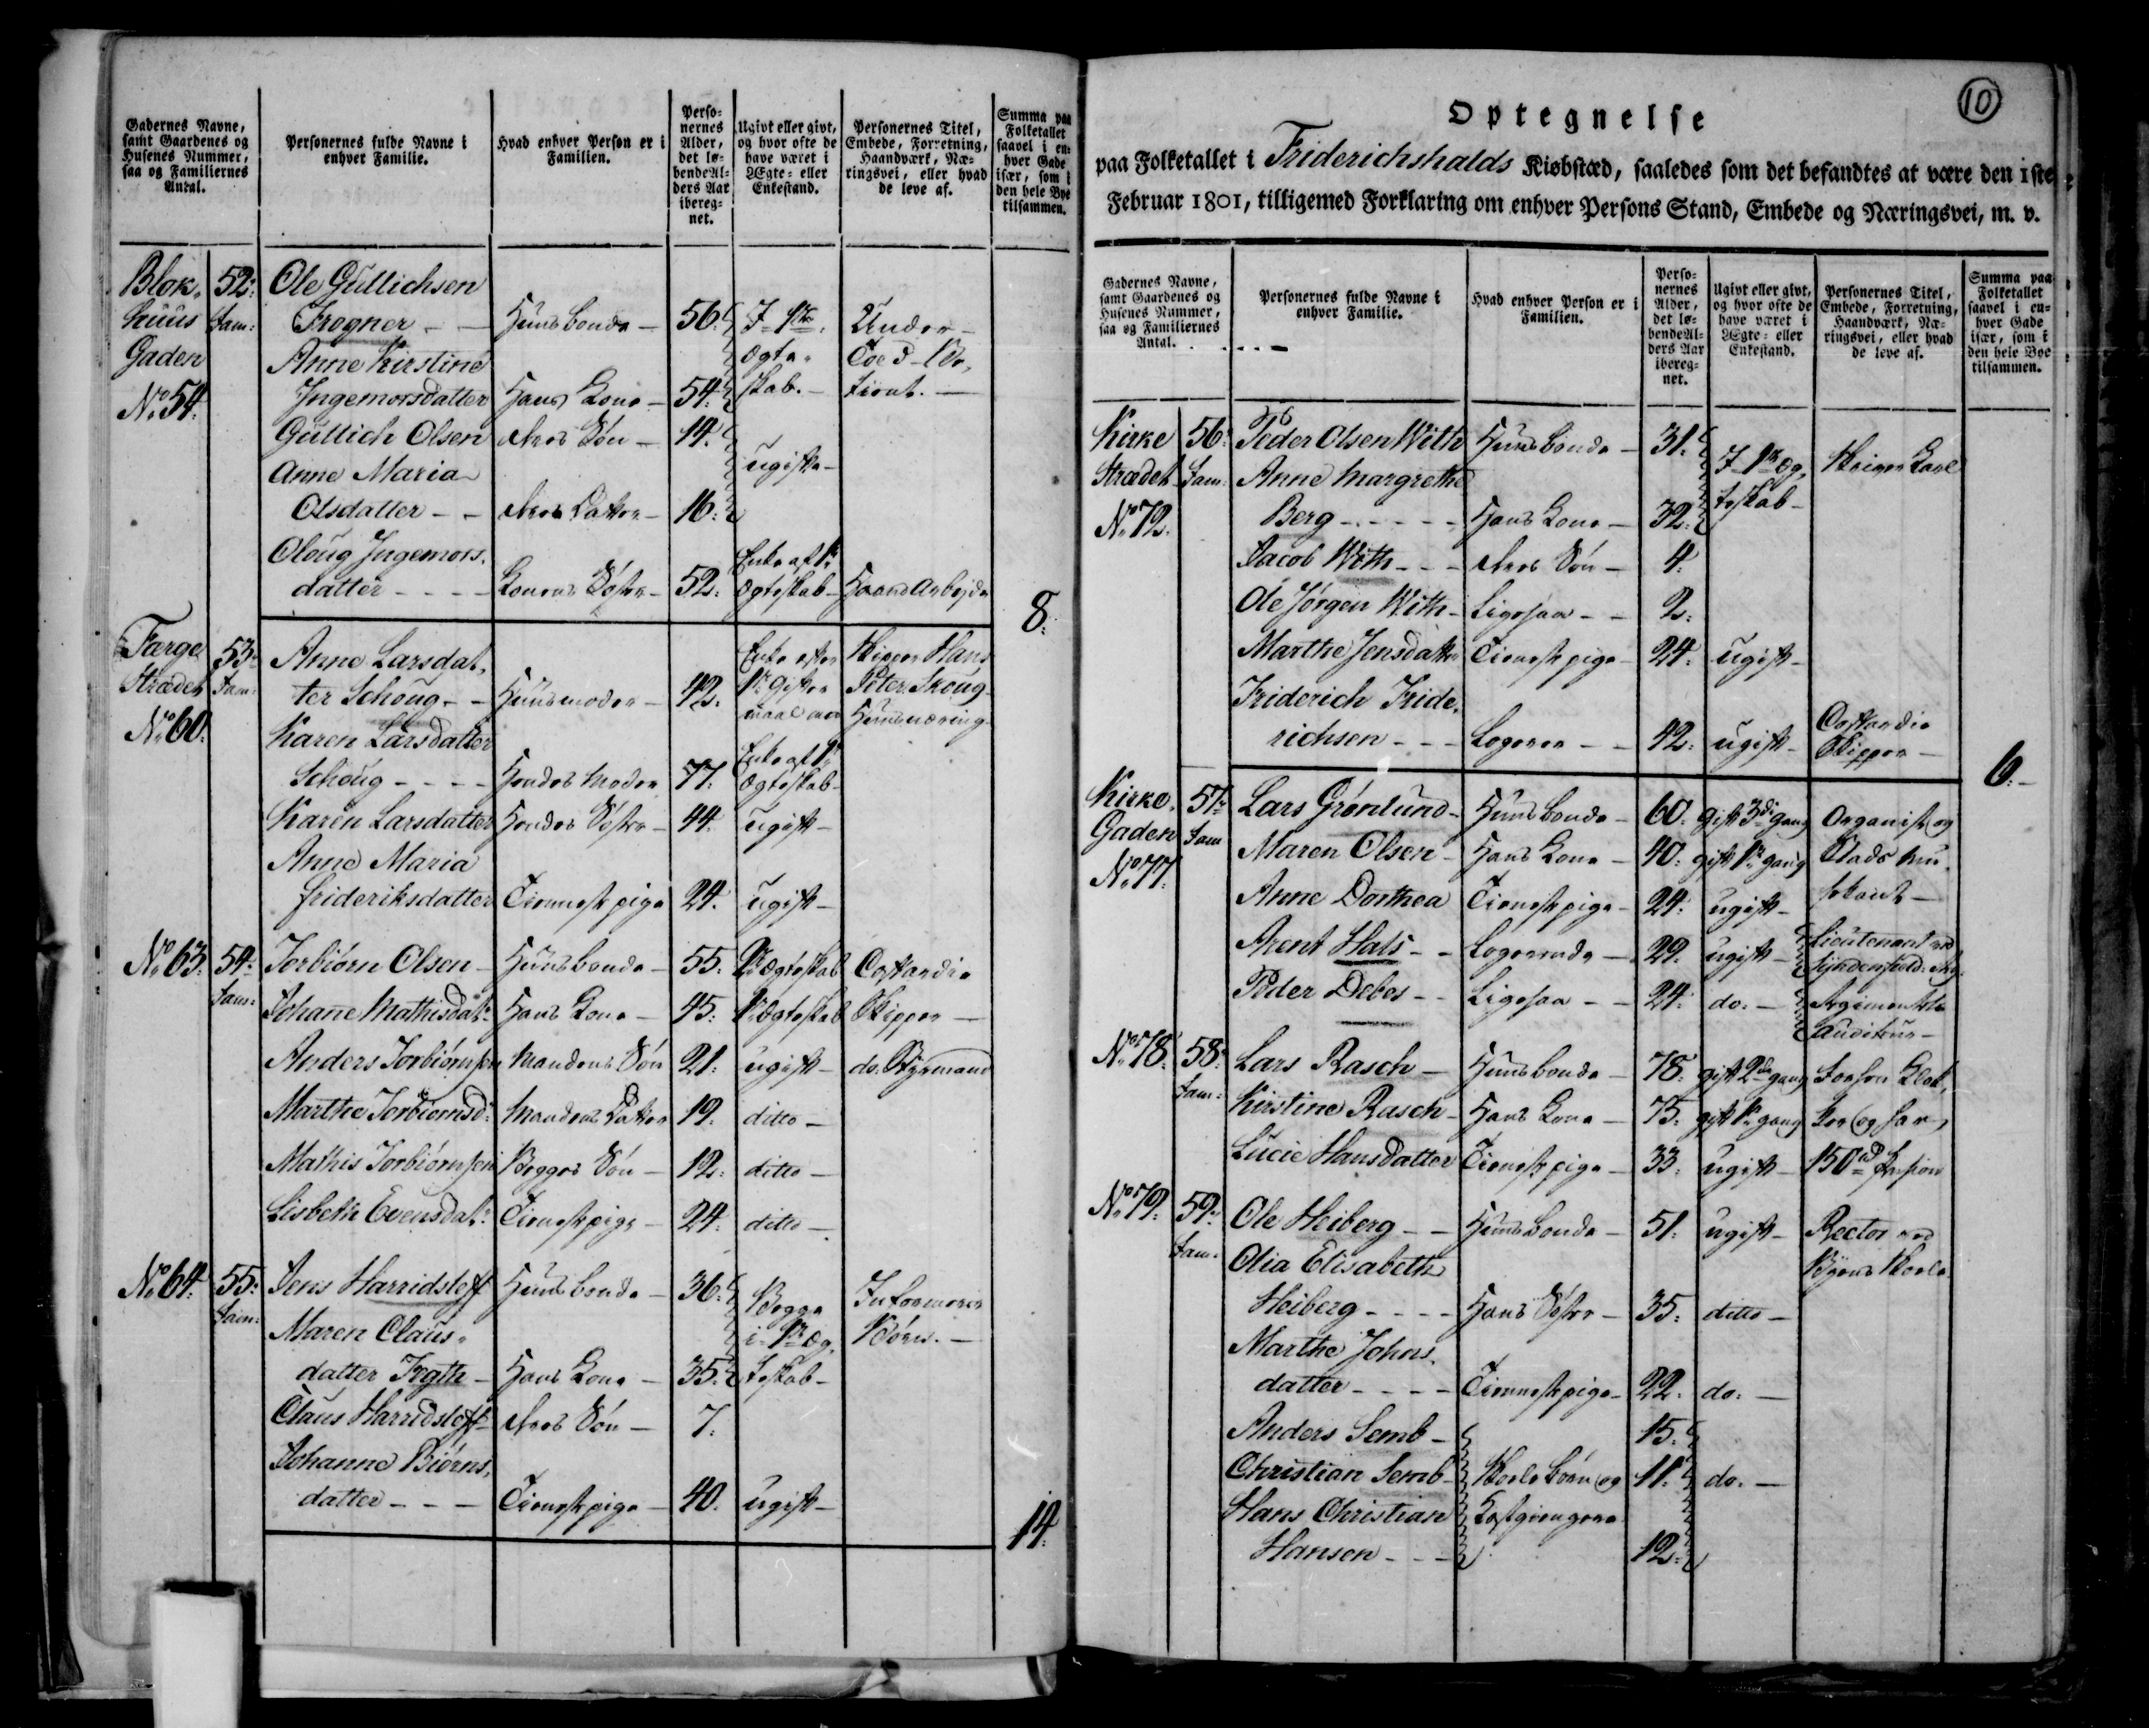 Gadernes Navne,
samt Gaardenes og
Husenes Nummer,
saa og Familiernes
Antal.
Personernes fulde Navne i
enhver Familie.
Hvad enhver Person er i
Familien.
Perso-
nernes
Alder,
det lø-
bende Al-
ders Aar
ibereg-
net.
Ugivt eller givt,
og hvor ofte de
have været i
Ægte- eller
Enkestand.
Personernes Titel,
Embede, Forretning,
Haandværk, Næ-
ringsvei, eller hvad
de leve af.
Summa paa
Folketallet
saavel i en-
hver Gade
især, som i
den hele Bye
tilsammen.
Blok- 52: Ole Gullichsen
huus Fam: Trogner - - Huusbonde - 56. I 1te Under-
Gaden Anne Kirstine ægte- Told-Be-
No. 54. Ingemorsdatter Hans Kone - 54. skab. - tient. -
Gullich Olsen deres Søn - 14.
Anne Maria ugifte -
Olsdatter - - deres Datter - 16.
Oloug Ingemors- Enke af 1te
datter - - - - Konens Søster - 52. ægteskab - Haandarbejde
8.
Færge 53: Anne Larsdat- Enke efter Skipper Hans
Strædet Fam: ter Schoug - - Huusmoder - 42. 1te Gifter- Peter Skoug
No. 60. maal Huusnæring
Karen Larsdatter Enke af 1te
Schoug - - - - Hendes Moder 77. ægteskab -
Karen Larsdatter Hendes Søster - 44. ugift -
Anne Maria
frideriksdatter Tienestpige 24. ugift -
No. 63. 54: Torbiørn Olsen - Huusbonde - 55. 1te ægteskab Costardie
Fam: Johane Mathisdatr. Hans Kone - 45. 1te ægteskab Skipper -
Anders Torbiørnsen Mandens Søn 21. ugift - do. Styrmand
Marthe Torbiørnsd: Mandens Datter 19. ditto -
Mathis Torbiørnsen Begges Søn - 12. ditto -
Lisbeth Evensdatr. Tienestpige - 24. ditto -
No. 64. 55: Jens Harridsleff Huusbonde - 36. Begge Informerer
Fam: Maren Claus- i 1te æg- Børn. -
datter Fryth - Hans Kone - 35. teskab -
Claus Harridsleff - deres Søn - 7.
Johanne Biørns-
datter - - - Tienestpige - 40. ugift -
14.
10
Optegnelse
paa Folketallet i Friderichshalds Kiøbstæd, saaledes som det befandtes at være den 1ste
Februar 1801, tilligemed Forklaring om enhver Persons Stand, Embede og Næringsvei, m. v.
Gadernes Navne,
samt Gaardenes og
Husenes Nummer,
saa og Familiernes
Antal.
Personernes fulde Navne i
enhver Familie.
Hvad enhver Person er i
Familien.
Perso-
nernes
Alder,
det lø-
bende Al-
ders Aar
ibereg-
net.
Ugivt eller givt,
og hvor ofte de
have været i
Ægte- eller
Enkestand.
Personernes Titel,
Embede, Forretning,
Haandværk, Næ-
ringsvei, eller hvad
de leve af.
Summa paa
Folketallet
saavel i en-
hver Gade
især, som i
den hele Bye
tilsammen.
Kirke 56: Peder Olsen With Huusbonde - 31.
Strædet Fam: Anne Margrethe I 1te æg- Skriver Karl
No. 72. Berg - - - - - Hans Kone - 32. teskab -
Jacob With - - - deres Søn - 4.
Ole Jørgen With - Ligesaa - - 2.
Marthe Jensdatter Tienestpige - 24. ugift -
Friderich Fride-
richsen - - - Logerer - - 42. ugift - Costardie Skipper -
6. -
Kirke- 57: Lars Grønlund - Huusbonde - 60. gift 3die gang Organist og
Gaden Fam: Maren Olsen - Hans Kone - 40. gift 1te gang Stads Mu-
No. 77. sikant -
Anne Dorthea Tienestpige - 24. ugift -
Arent Hals - - Logerende - 29. ugift - Lieutenant ved
Søndenfield:
Peder Debes - - Ligesaa - - 24. do. - Regiments
Auditeur -
No. 78. 58: Lars Rasch - Huusbonde - 78. gift 2den gang Forhen Klok-
Fam: Kirstine Rasch - Hans Kone - 75. gift 1te gang ker og har
Lucie Hansdatter Tienestpige - 33. ugift - 150 rd Pension
No. 79. 59: Ole Heiberg - - Huusbonde - 51. ugift - Rector ved
Fam: Olia Elisabeth Byens Skole
Heiberg - - - - Hans Søster - 35. ditto -
Marthe Johns-
datter - - - - Tienestpige - 22. do. -
Anders Semb - 15.
Christian Semb - Skolebørn og 11. do. -
Hans Christian Kostgiengere
Hansen - - - 12.